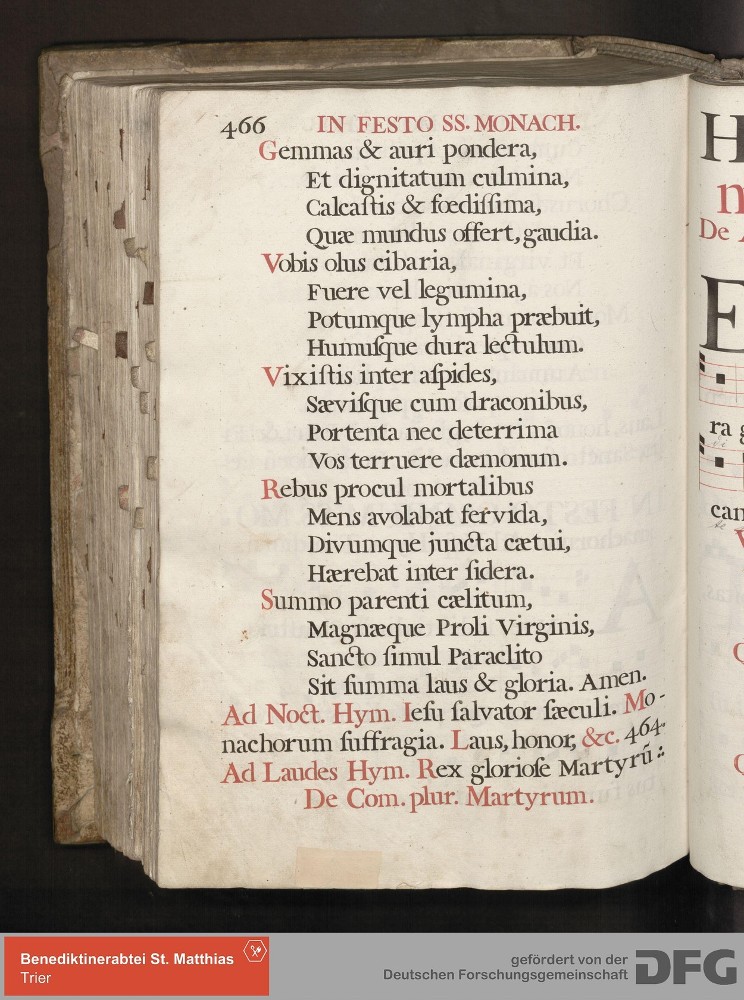 466 IN FESTO SS. MONACH.
Gemmas & auri pondera,
Et dignitatum culmina,
Calcaſtis & fœdiſſima,
Quæ mundus offert, gaudia.
Vobis olus cibaria,
Fuere vel legumina,
Potumque lympha præbuit,
Humuſque dura lectulum.
Vixiſtis inter aſpides,
Sæviſque cum draconibus,
Portenta nec deterrima
Vos terruere dæmonum.
Rebus procul mortalibus
Mens avolabat fervida,
Divumque juncta cætui,
Hærebat inter ſidera.
Summo parenti cælitum,
Magnæque Proli Virginis,
Sancto ſimul Paraclito
Sit ſumma laus & gloria. Amen.
Ad Noct. Hym. Ieſu ſalvator ſæculi. Mo-
nachorum ſuffragia. Laus, honor, &c. 464.
Ad Laudes Hym. Rex glorioſe Martyrũ :.
De Com. plur. Martyrum.
H
De
E
ra g
can
Benediktinerabtei St. Matthias
Trier
gefördert von der
Deutschen Forschungsgemeinschaft
DFG